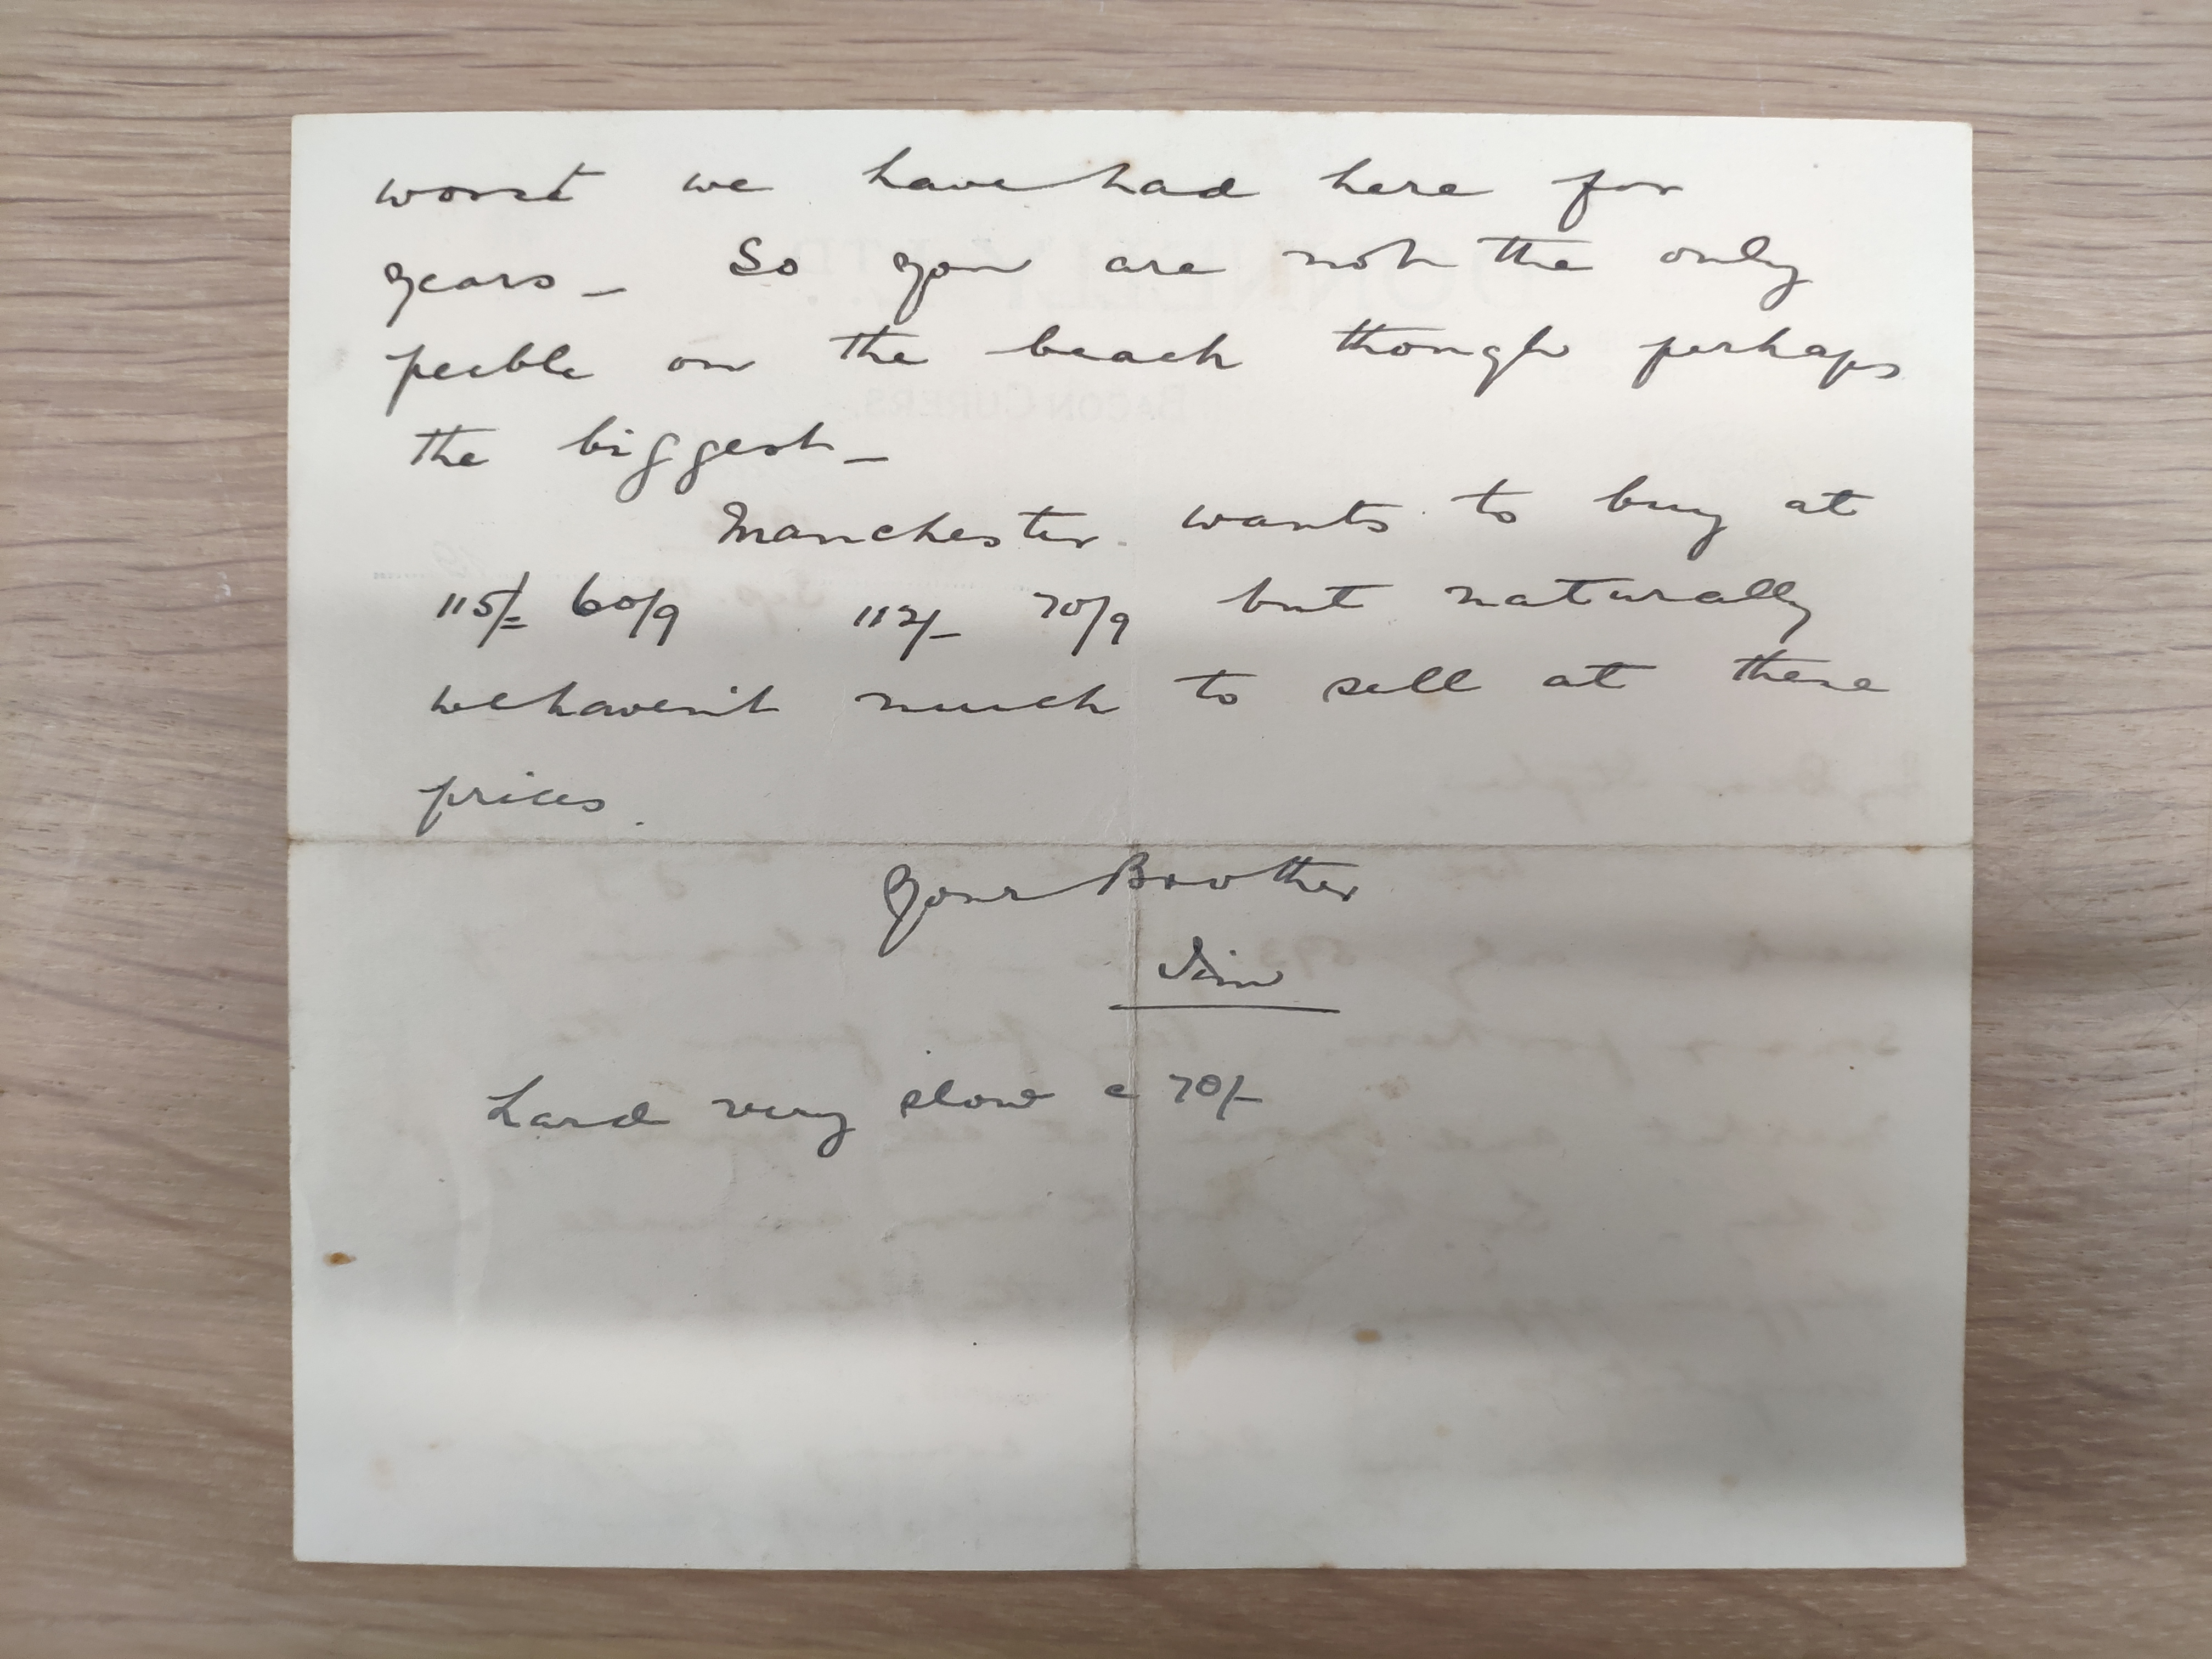 worst we have had here for
years — So you are not the only
peeble on the beach though perhaps
the biggest —
Manchester wants to buy at
115/= 60/9 112/- 70/9 but naturally
we haven't much to sell at these
prices.
Your Brother
Jim
Lard very slow @ 70/-